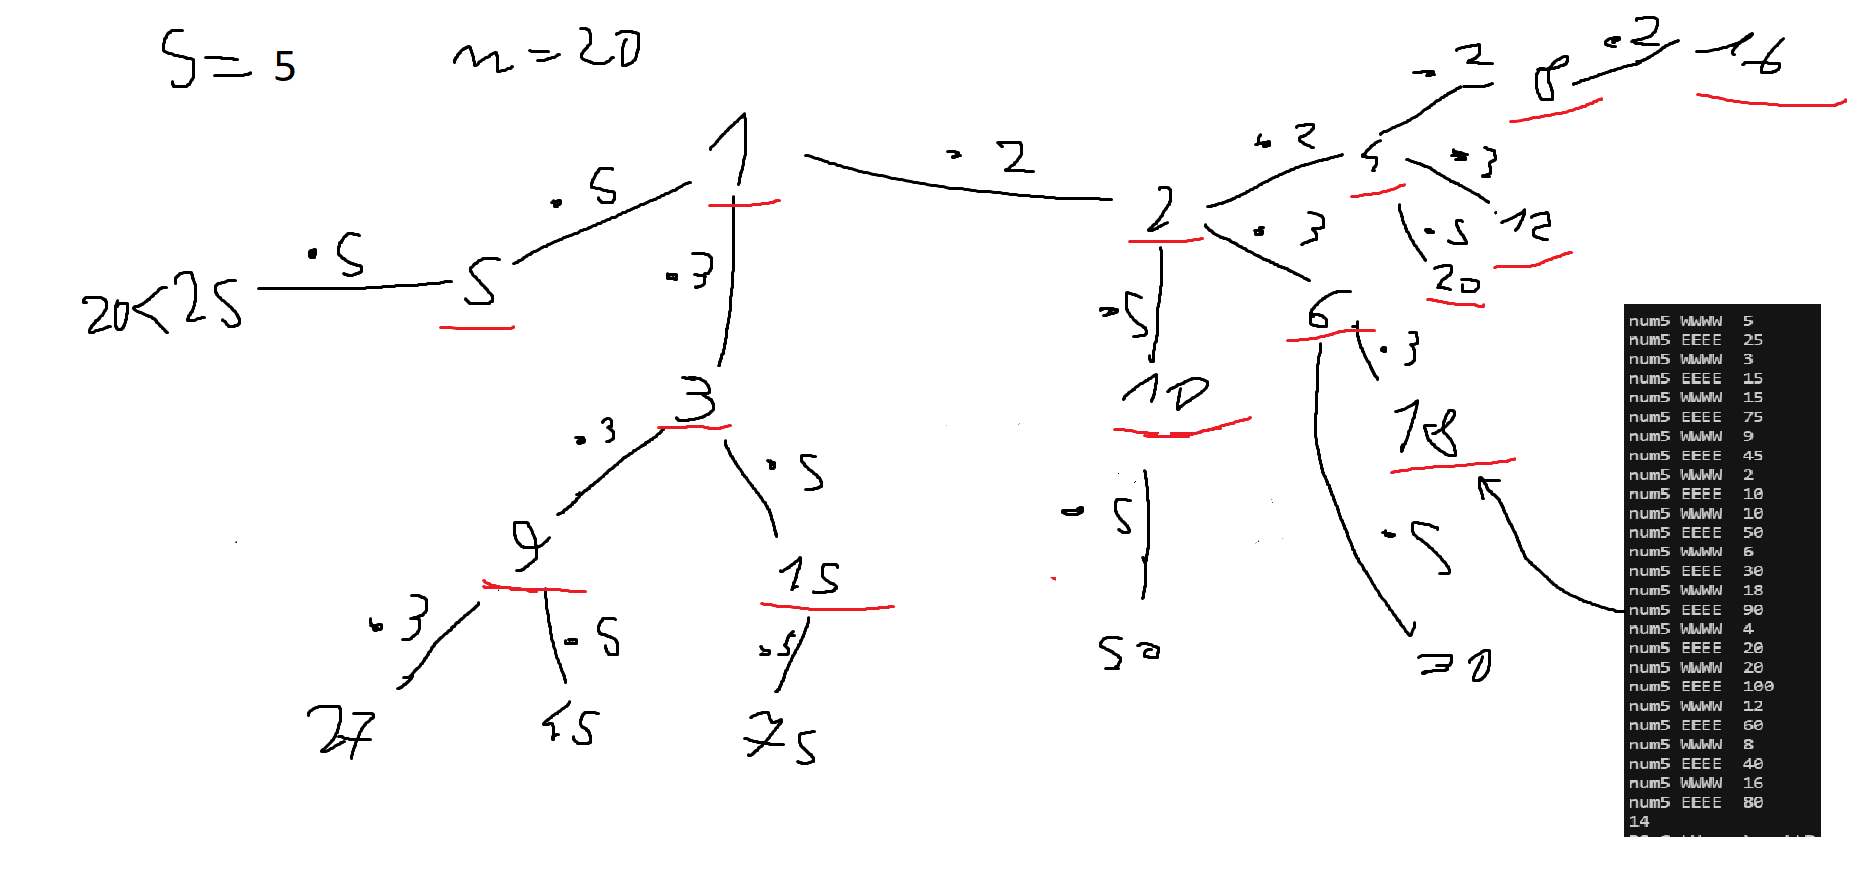 S = 5
n = 20
1
· 2
2
· 2
4
· 2
8
· 2
16
· 3
12
· 5
20
· 3
6
· 3
18
· 5
30
· 5
10
· 5
50
· 5
5
· 5
20<25
· 3
3
· 3
9
· 3
27
· 5
45
· 5
15
· 5
75
num5 WWWW 5
num5 EEEE 25
num5 WWWW 3
num5 EEEE 15
num5 WWWW 15
num5 EEEE 75
num5 WWWW 9
num5 EEEE 45
num5 WWWW 2
num5 EEEE 10
num5 WWWW 10
num5 EEEE 50
num5 WWWW 6
num5 EEEE 30
num5 WWWW 18
num5 EEEE 90
num5 WWWW 4
num5 EEEE 20
num5 WWWW 20
num5 EEEE 100
num5 WWWW 12
num5 EEEE 60
num5 WWWW 8
num5 EEEE 40
num5 WWWW 16
num5 EEEE 80
14